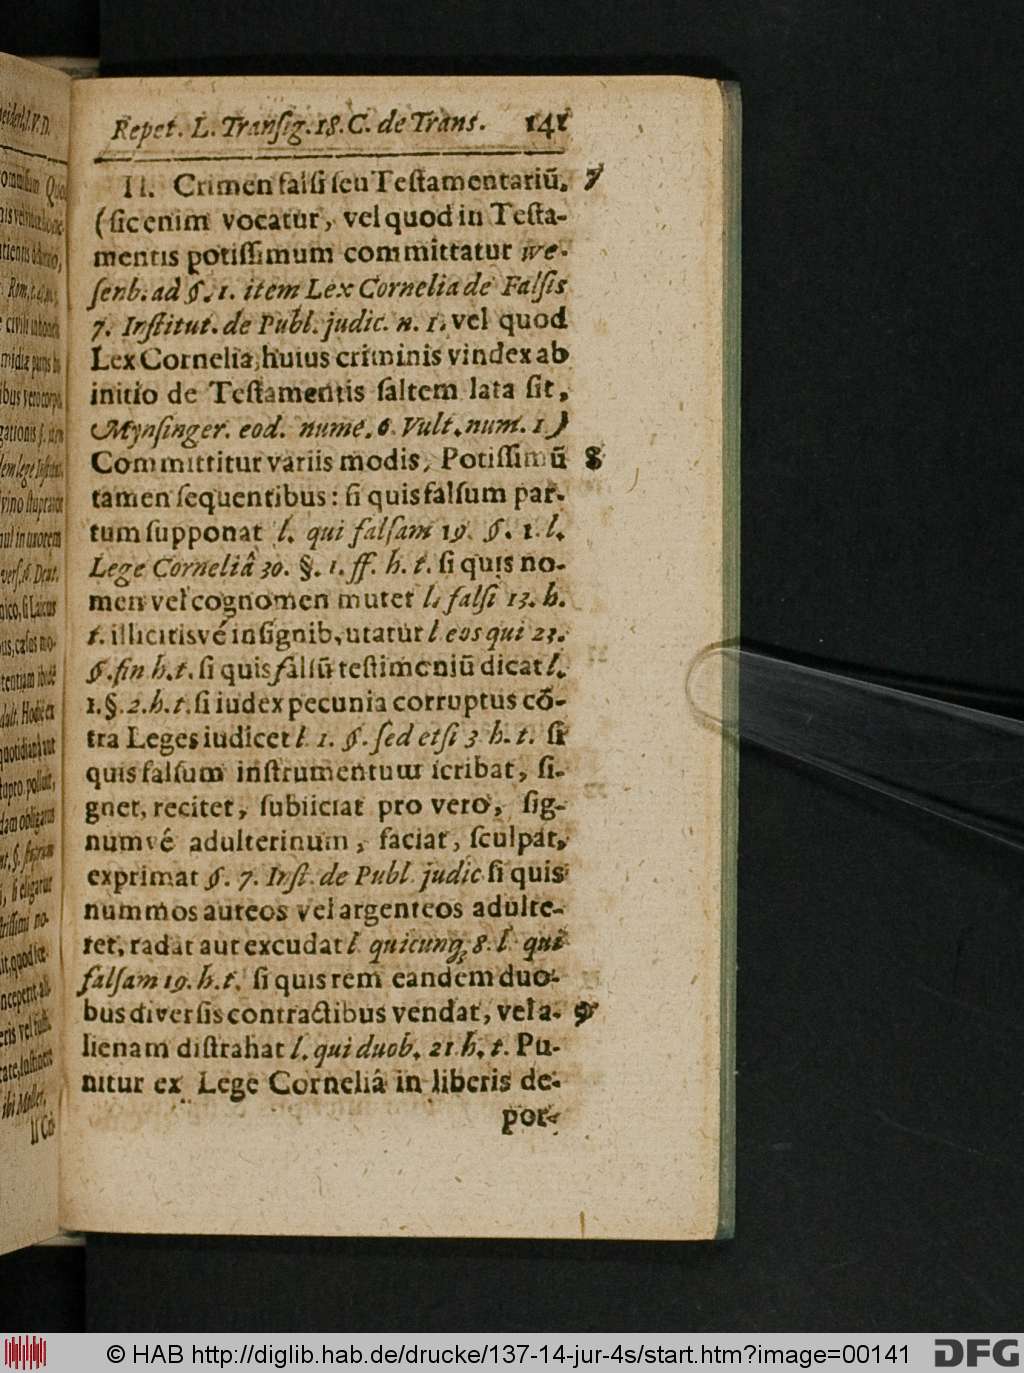 Repet. L. Transig. 18. C. de Trans. 141
II. Crimen falsi seu Testamentariũ, 7
(sic enim vocatur, vel quod in Testa-
mentis potissimum committatur We-
senb. ad §. 1. item Lex Cornelia de Falsis
7. Institut. de Publ. judic. n. 1. vel quod
Lex Cornelia, huius criminis vindex ab
initio de Testamentis saltem lata sit,
Mynsinger. eod. nume. 6. Vult. num. 1)
Committitur variis modis, Potissimũ 8
tamen sequentibus: si quis falsum par-
tum supponat l. qui falsam 19. §. 1. l.
Lege Corneliâ 30. §. 1. ff. h. t. si quis no-
men vel cognomen mutet l. falsi 13. h.
t. illicitisvé insignib. utatur l eos qui 27.
§. fin h. t. si quis falsũ testimoniũ dicat l.
1. §. 2. h. t. si iudex pecunia corruptus cõ-
tra Leges iudicet l 1. §. sed etsi 3 h. t. si
quis falsum instrumentum scribat, si-
gnet, recitet, subiiciat pro vero, sig-
numvé adulterinum, faciat, sculpat,
exprimat §. 7. Inst. de Publ. judic si quis
nummos aureos vel argenteos adulte-
ret, radat aut excudat l quicunq; 8. l qui
falsam 19. h. t. si quis rem eandem duo-
bus diversis contractibus vendat, vel a- 9
lienam distrahat l. qui duob. 21 h. t. Pu-
nitur ex Lege Corneliâ in liberis de-
por-
© HAB http://diglib.hab.de/drucke/137-14-jur-4s/start.htm?image=00141
DFG